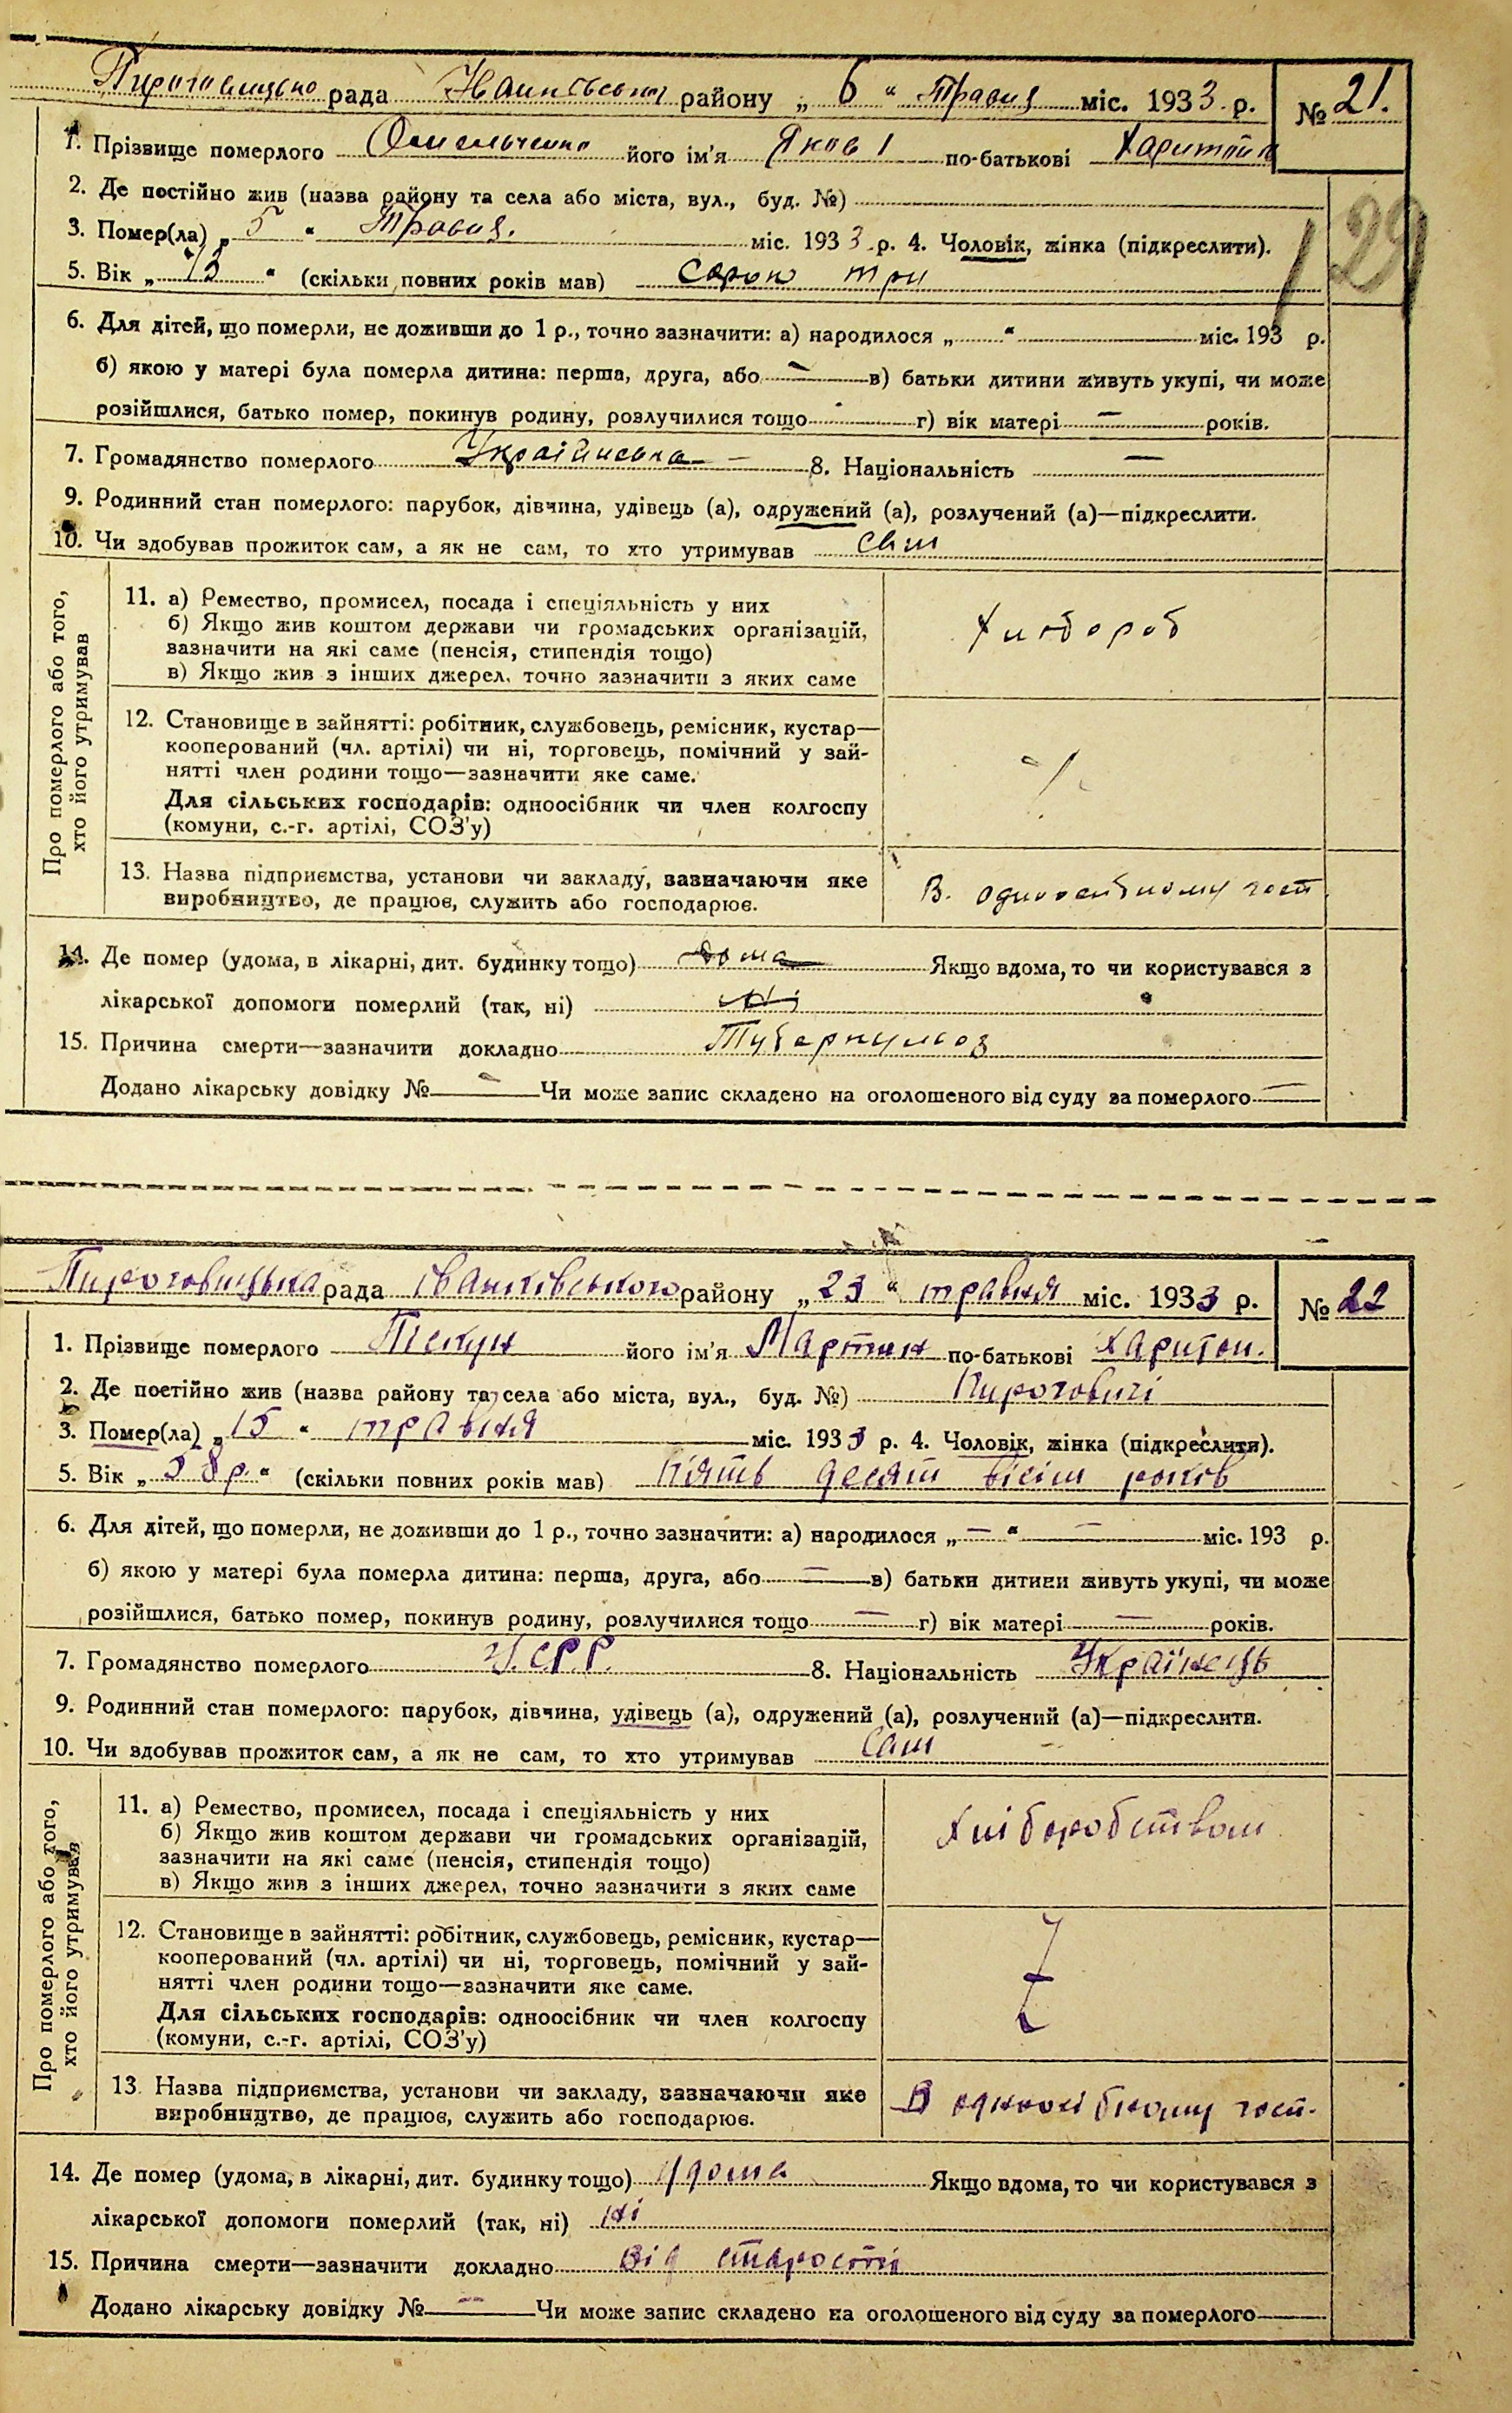 рада району „ 6 " Травня міс. 1933 р. № 21.
1. Прізвище померлого Омельченко його ім'я Яков по-батькові Харитон
129
2. Де постійно жив (назва району та села або міста, вул., буд. №)
3. Помер(ла) „ 5 " Травня. міс. 1933 р. 4. Чоловік, жінка (підкреслити).
5. Вік „ 43 " (скільки повних років мав) сорок три
6. Для дітей, що померли, не доживши до 1 р., точно зазначити: а) народилося „ " міс. 193 р.
б) якою у матері була померла дитина: перша, друга, або — в) батьки дитини живуть укупі, чи може
розійшлися, батько помер, покинув родину, розлучилися тощо г) вік матері — років.
7. Громадянство померлого Українська — 8. Національність —
9. Родинний стан померлого: парубок, дівчина, удівець (а), одружений (а), розлучений (а)—підкреслити.
10. Чи здобував прожиток сам, а як не сам, то хто утримував сам
Про померлого або того,
хто його утримував
11. а) Ремество, промисел, посада і спеціяльність у них
б) Якщо жив коштом держави чи громадських організацій,
зазначити на які саме (пенсія, стипендія тощо)
в) Якщо жив з інших джерел, точно зазначити з яких саме
Хлібороб
12. Становище в зайнятті: робітник, службовець, ремісник, кустар—
кооперований (чл. артілі) чи ні, торговець, помічний у зай-
нятті член родини тощо—зазначити яке саме.
Для сільських господарів: одноосібник чи член колгоспу
(комуни, с.-г. артілі, СОЗ'у)
13. Назва підприємства, установи чи закладу, зазначаючи яке
виробництво, де працює, служить або господарює.
В. одноосібному госп.
14. Де помер (удома, в лікарні, дит. будинку тощо) дома Якщо вдома, то чи користувався з
лікарської допомоги померлий (так, ні) ні
15. Причина смерти—зазначити докладно Туберкульоз
Додано лікарську довідку № — Чи може запис складено на оголошеного від суду за померлого —
Пироговицька рада Іванківського району „ 23 " травня міс. 1933 р. № 22
1. Прізвище померлого Пекун його ім'я Мартин по-батькові Харитон.
2. Де постійно жив (назва району та села або міста, вул., буд. №) Пироговичі
3. Помер(ла) „ 15 " травня міс. 1933 р. 4. Чоловік, жінка (підкреслити).
5. Вік „ 58 р. " (скільки повних років мав) пять десят вісім років
6. Для дітей, що померли, не доживши до 1 р., точно зазначити: а) народилося „ — " — міс. 193 р.
б) якою у матері була померла дитина: перша, друга, або — в) батьки дитини живуть укупі, чи може
розійшлися, батько помер, покинув родину, розлучилися тощо — г) вік матері — років.
7. Громадянство померлого У.С.Р.Р. 8. Національність Українець
9. Родинний стан померлого: парубок, дівчина, удівець (а), одружений (а), розлучений (а)—підкреслити.
10. Чи здобував прожиток сам, а як не сам, то хто утримував Сам
Про померлого або того,
хто його утримував
11. а) Ремество, промисел, посада і спеціяльність у них
б) Якщо жив коштом держави чи громадських організацій,
зазначити на які саме (пенсія, стипендія тощо)
в) Якщо жив з інших джерел, точно зазначити з яких саме
Хліборобством
12. Становище в зайнятті: робітник, службовець, ремісник, кустар—
кооперований (чл. артілі) чи ні, торговець, помічний у зай-
нятті член родини тощо—зазначити яке саме.
Для сільських господарів: одноосібник чи член колгоспу
(комуни, с.-г. артілі, СОЗ'у)
13. Назва підприємства, установи чи закладу, зазначаючи яке
виробництво, де працює, служить або господарює.
В одноосібному госп.
14. Де помер (удома, в лікарні, дит. будинку тощо) удома Якщо вдома, то чи користувався з
лікарської допомоги померлий (так, ні) ні
15. Причина смерти—зазначити докладно від старости
Додано лікарську довідку № — Чи може запис складено на оголошеного від суду за померлого